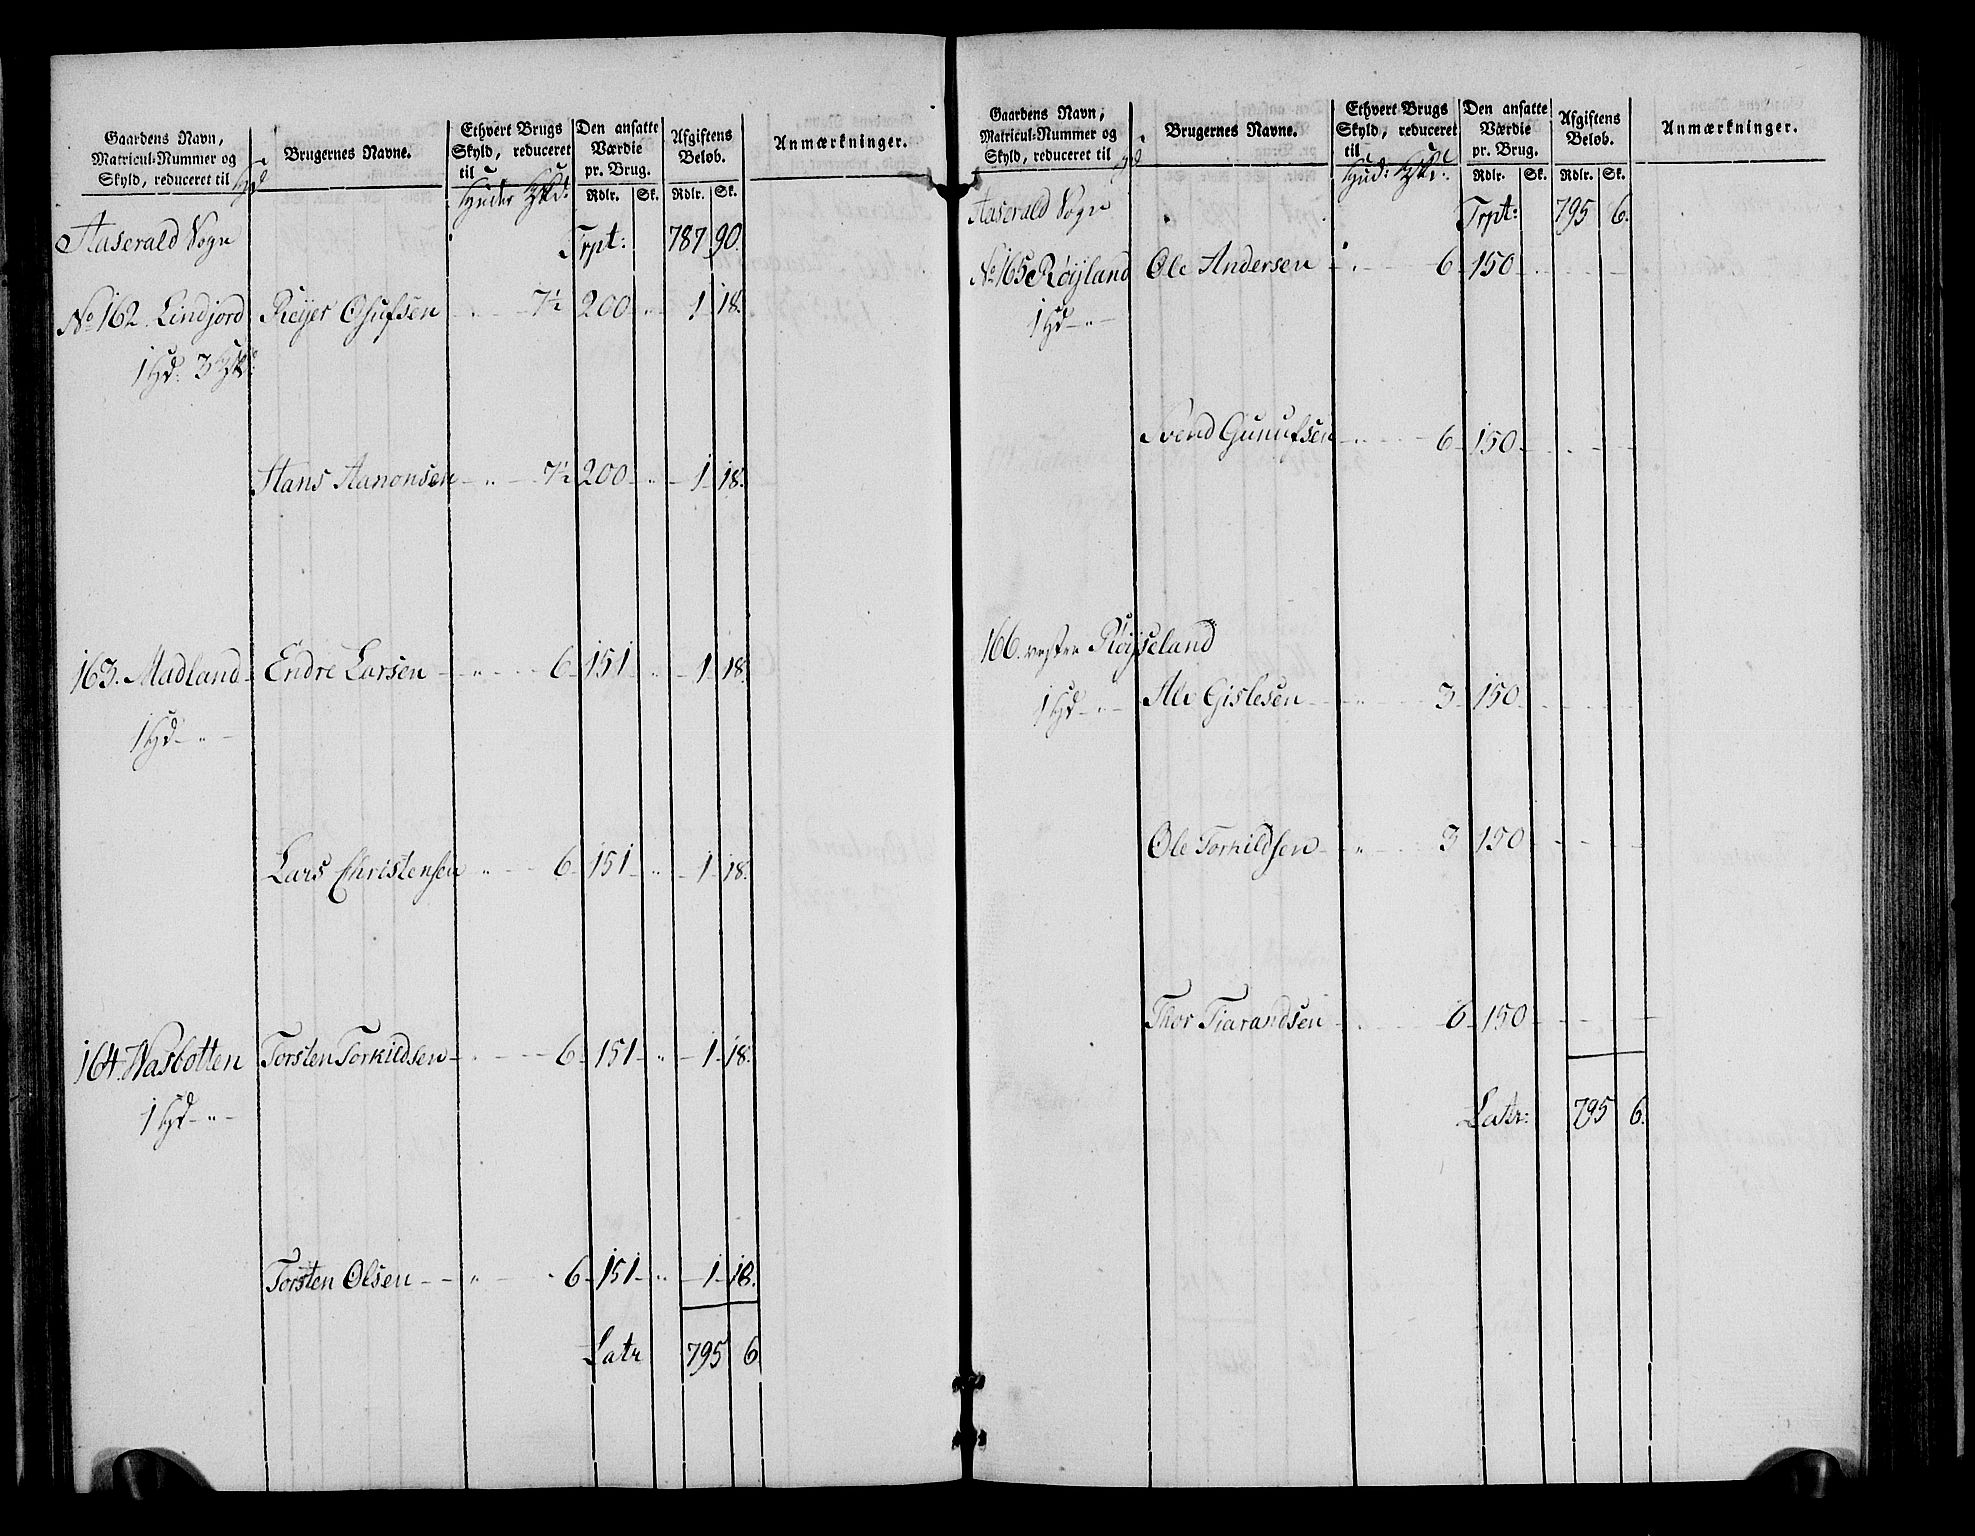 Gaardens Navn,
Matricul-Nummer og
Skyld, reduceret til
Hd
Brugernes Navne.
Ethvert Brugs
Skyld, reduceret
til
Huder Skd:
Den ansatte
Værdie
pr. Brug.
Rdlr. Sk.
Afgiftens
Beløb.
Rdlr. Sk.
Anmærkninger.
Aaserald Sogn Trpt: 787 90.
No 162. Lindjord Reijer Osufsen " 7½ 200 " 1 18.
1 Hd: 3 Skd:
Hans Aanonsen - " - 7½ 200 " - 1 - 18.
163. Madland - Endre Larsen - " - 6 - 151 " - 1 - 18.
1 Hd - " -
Lars Christensen " - 6 - 151 - " - 1 - 18.
164. Nasbotten Torsten Torkildsen - " - 6 - 151 - " - 1 - 18.
1 Hd - " -
Torsten Olsen - " - 6 - 151 - " - 1 - 18.
Latr 795 6.
Gaardens Navn,
Matricul-Nummer og
Skyld, reduceret til
Hd
Brugernes Navne.
Ethvert Brugs
Skyld, reduceret
til
Hud: Skd:
Den ansatte
Værdie
pr. Brug.
Rdlr. Sk.
Afgiftens
Beløb.
Rdlr. Sk.
Anmærkninger.
Aaserald Sogn Trpt: 795 6.
No 165 Røyland Ole Andersen - " - 6 - 150 - - -
1 Hd - " -
Svend Gunufsen - " - 6 - 150 - - -
166. vester Røyseland
1 Hd - " - Ale Gislesen - " - 3 - 150 - - -
Ole Torkildsen - " - 3 - 150 - - -
Thor Tiarandsen - " - 6 - 150 - - -
Latr: 795 6.